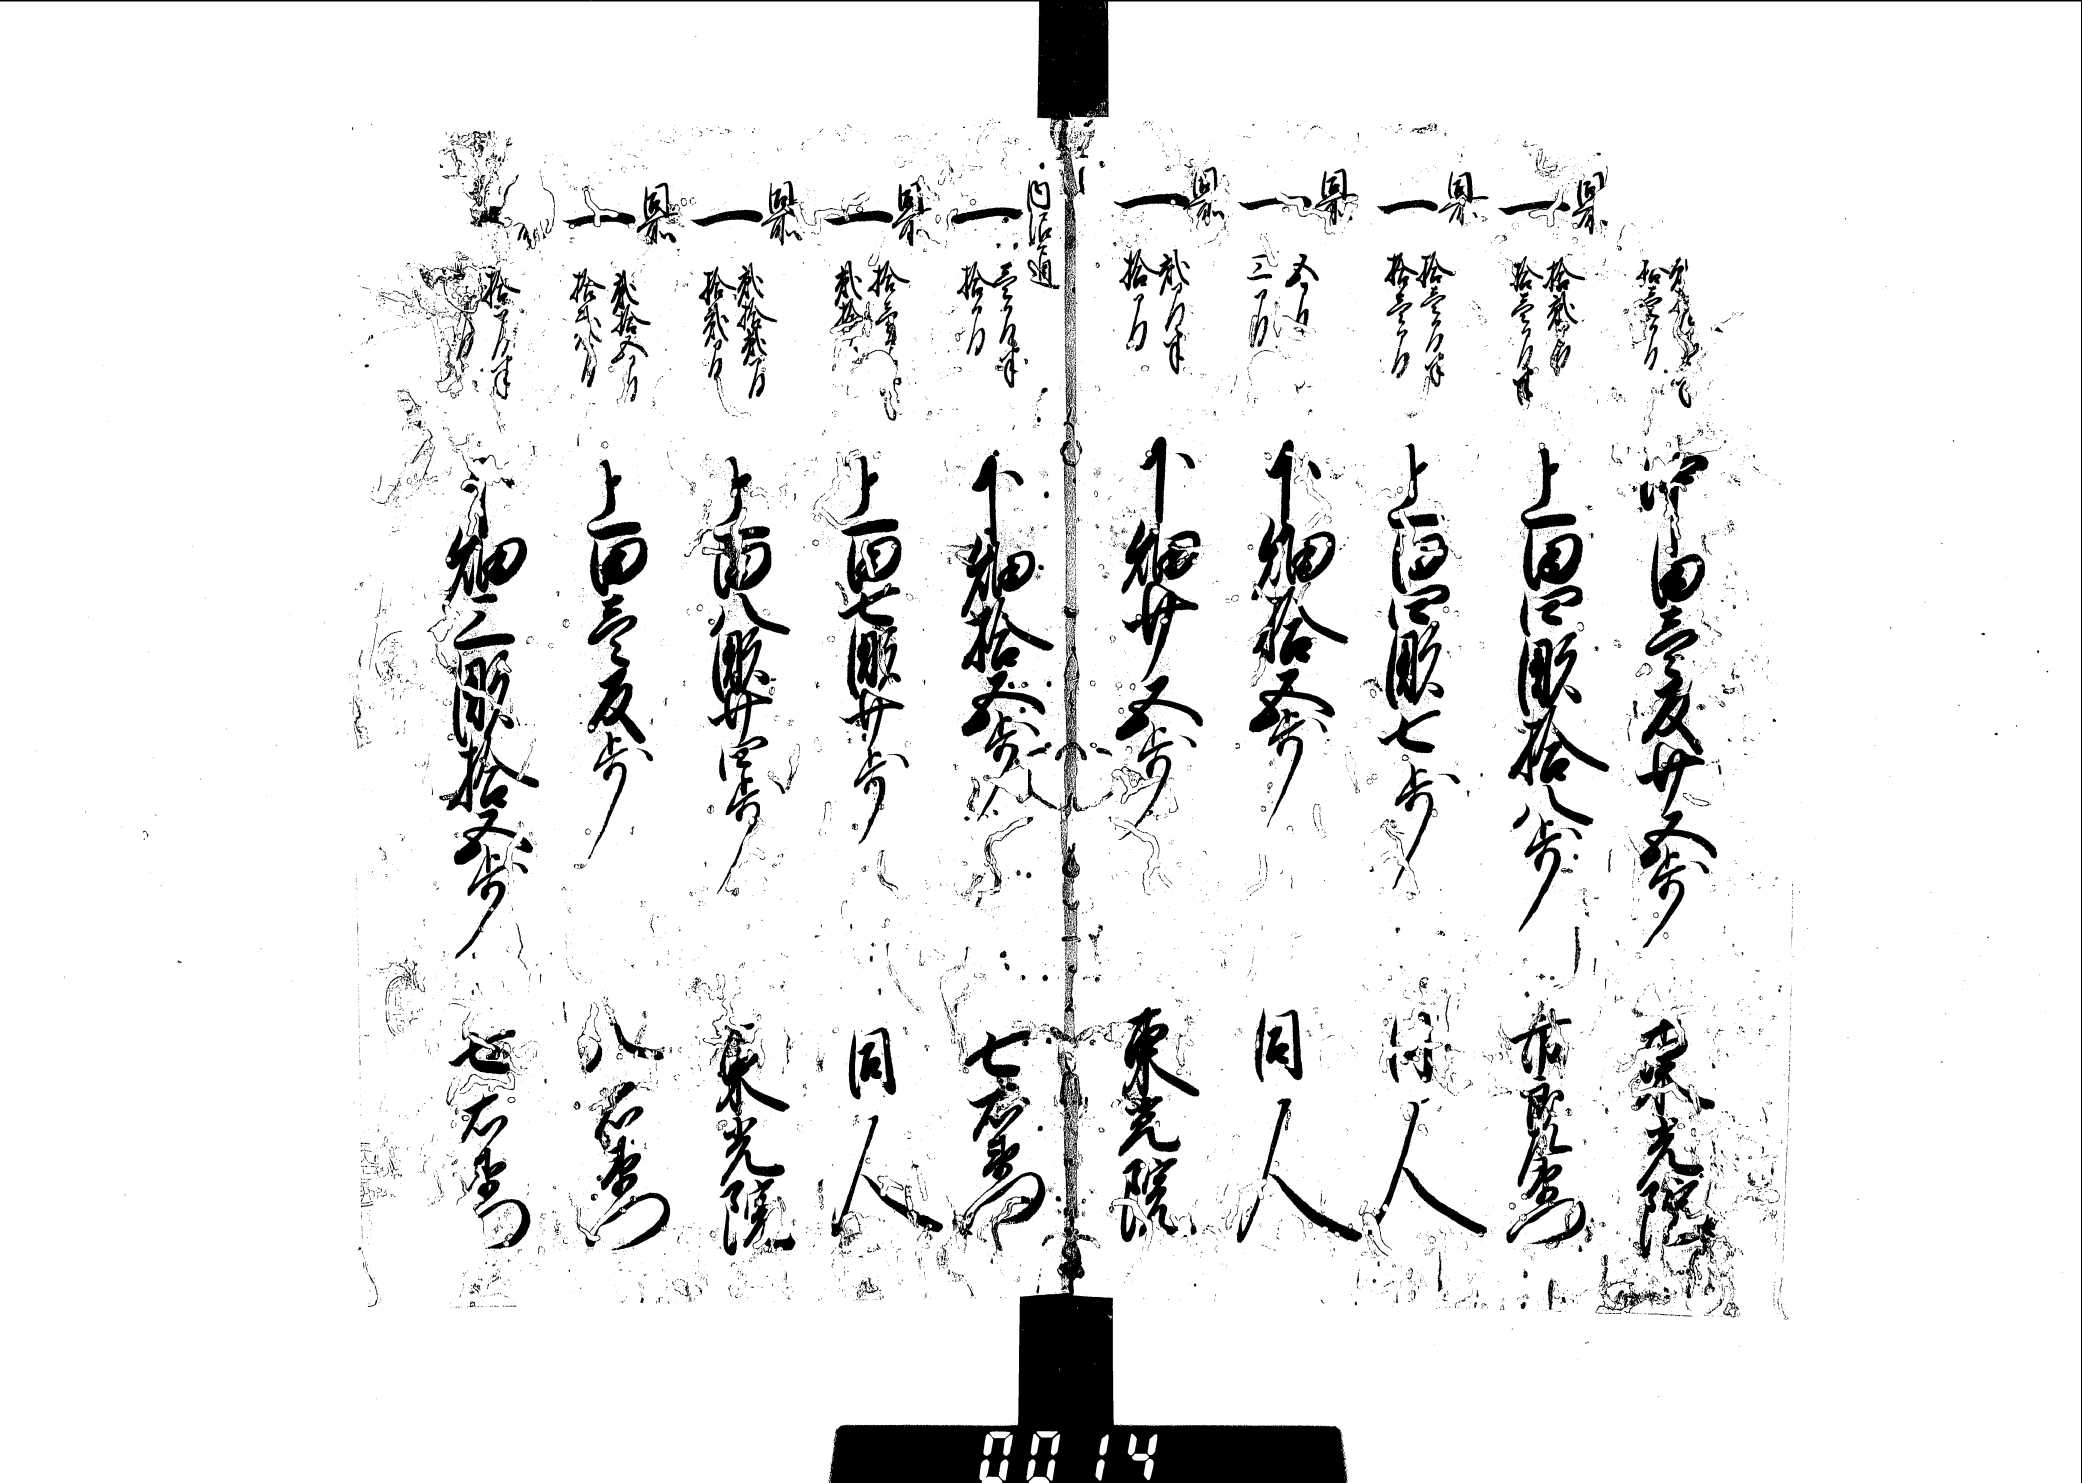 拾壱間
中田壱反廿五歩
東光院
同所
一
拾弐間
拾壱間半
上田四畝拾八歩
市郎左衛門
同所
一
拾壱間半
拾壱間
上田四畝七歩
同人
同所
一
五間
三間
下畑拾五歩
同人
同所
一
弐間半
拾間
下畑廿五歩
東光院
一
壱間半
拾間
下畑拾五歩
七右衛門
同所
一
拾壱間
弐拾
上田七畝廿歩
同人
同所
一
弐拾弐間
拾弐間
上田八畝廿四歩
東光院
同所
一
弐拾五間
拾弐間
上田壱反歩
八右衛門
一
拾間半
下畑三畝拾五歩
七右衛門
0014